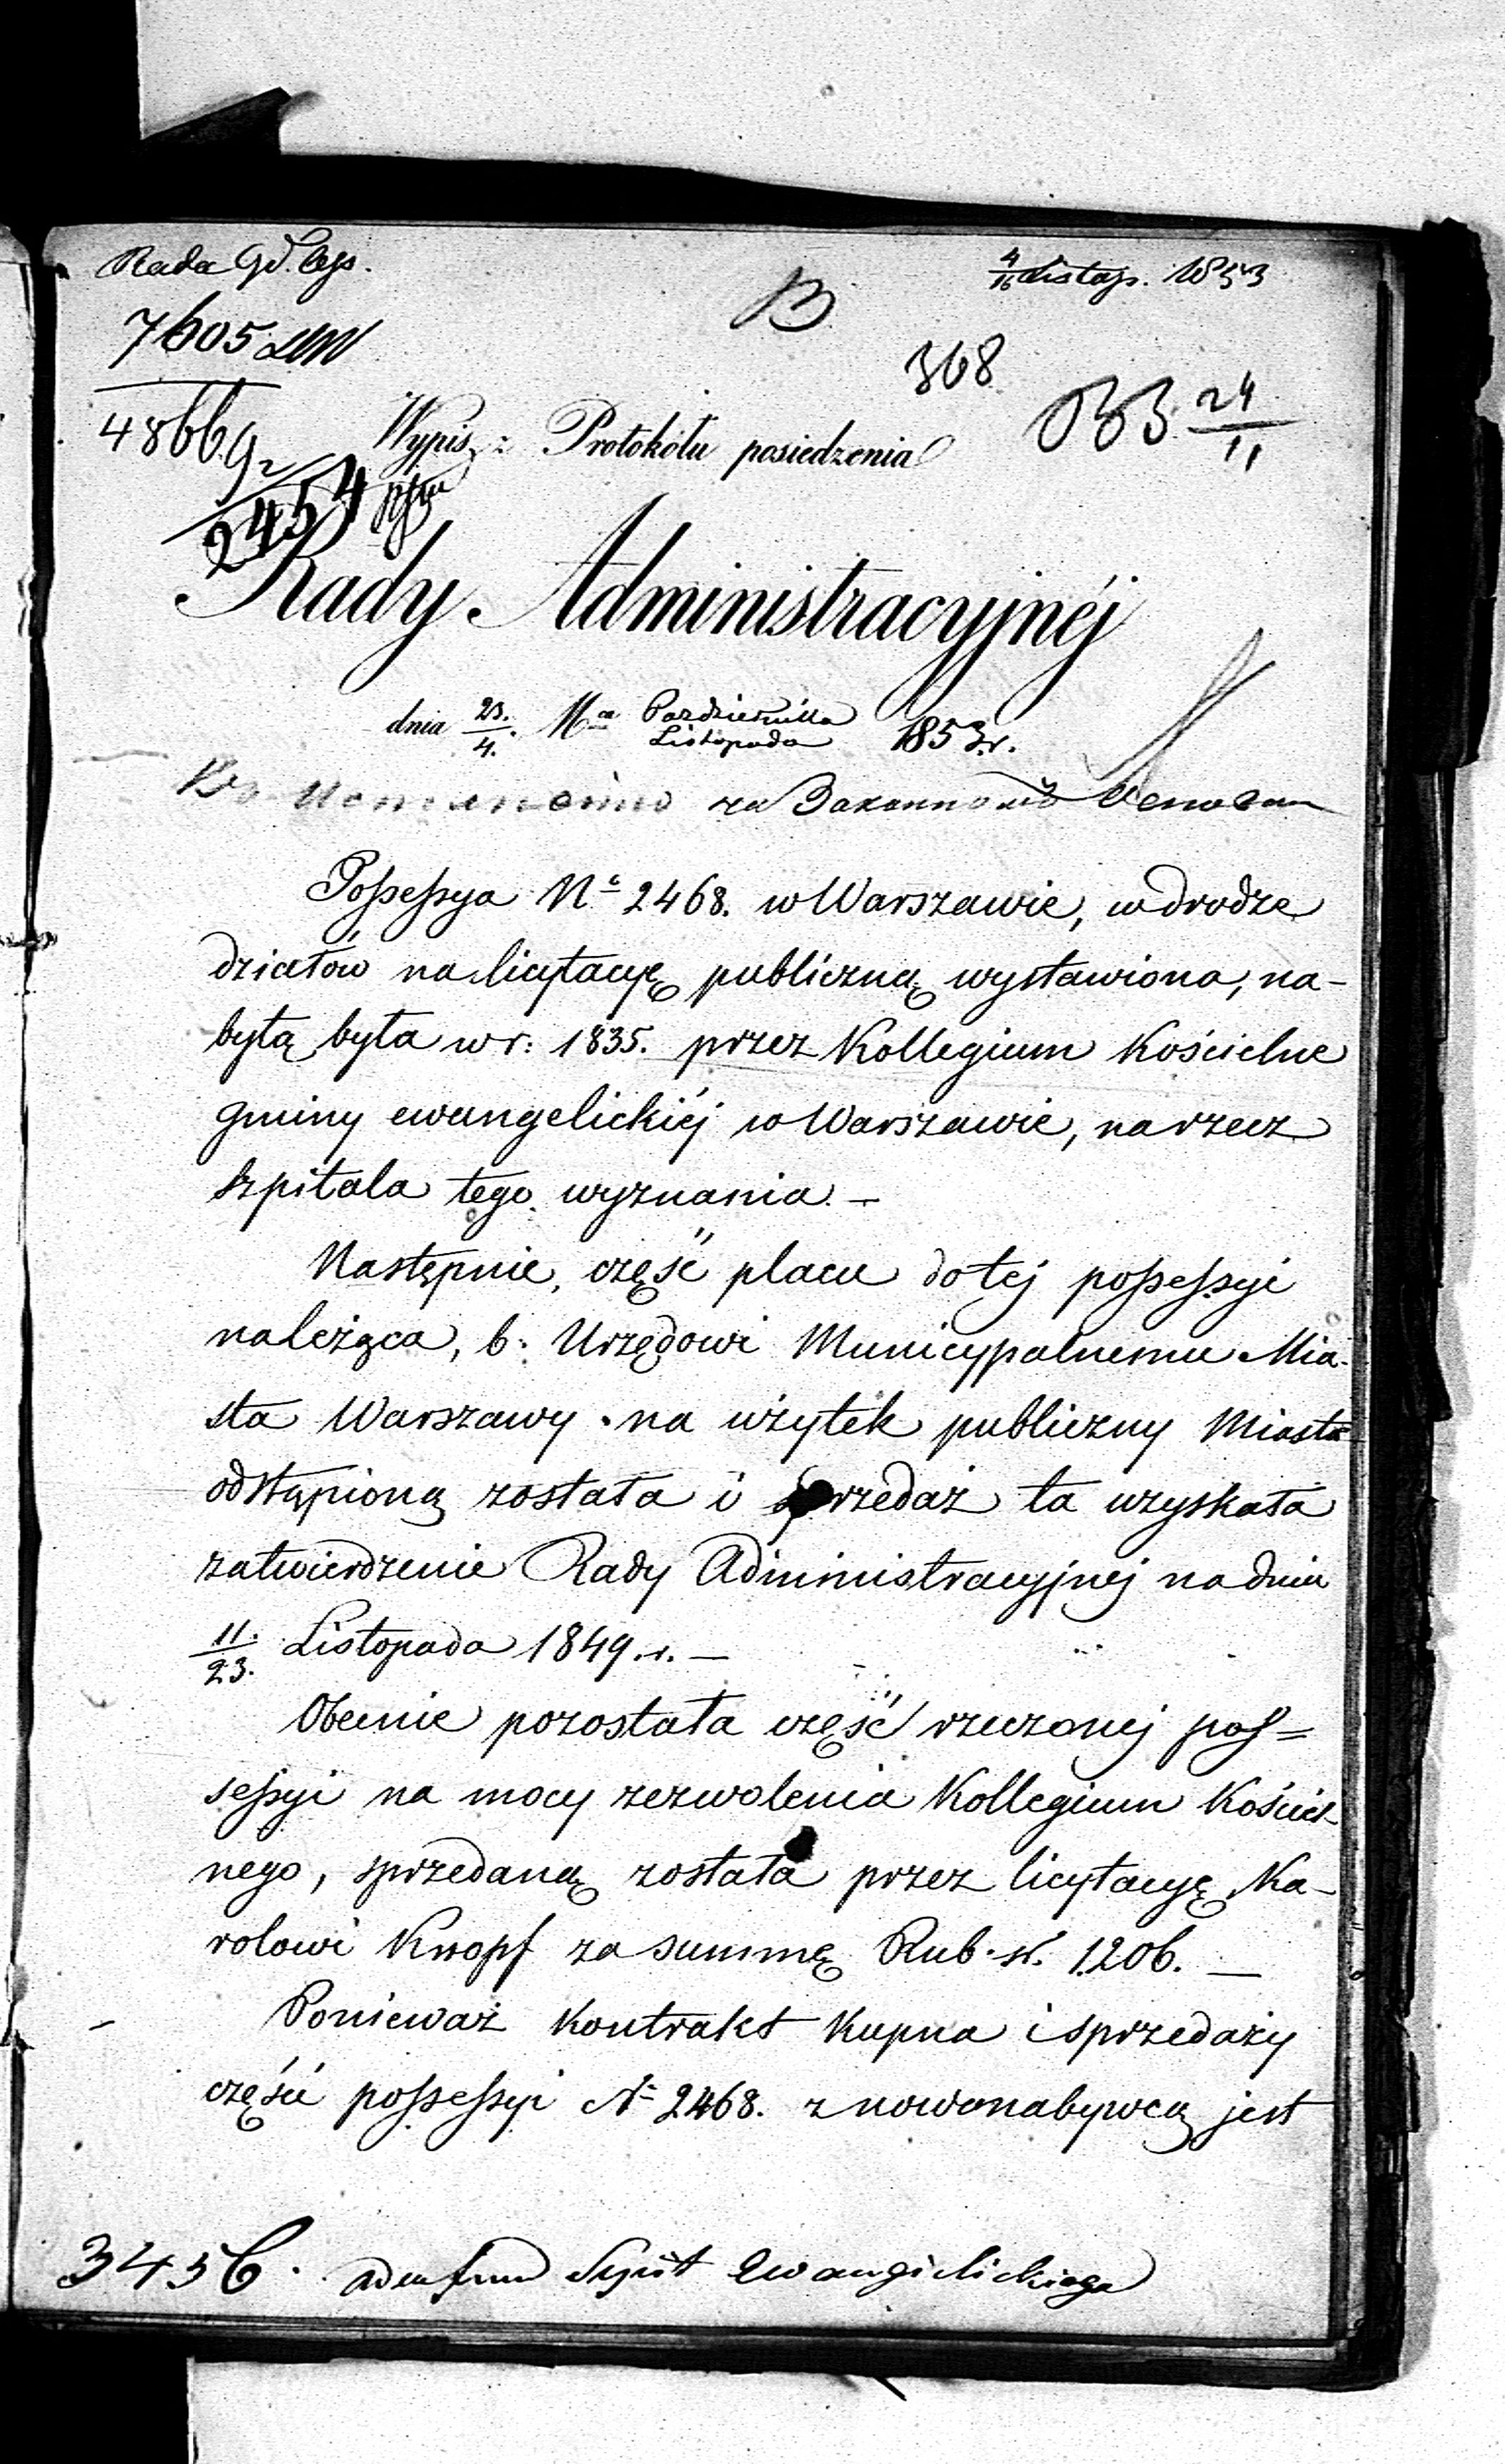 Rada Gł. Op.
4/16 Listop. 1853
B
7605
368
4866
24/11
Wypis z Protokółu posiedzenia
2454
Rady Administracyjnéj
dnia 23./4. Mca Października/Listopada 1853 r.
za
Possessya No 2468. w Warszawie, w drodze
działów na licytacyę publiczną wystawiona, na-
bytą była w r: 1835. przez Kollegium Kościelne
gminy ewangelickiéj w Warszawie, na rzecz
szpitala tego wyznania. —
Następnie, część placu do tej possessyi
należąca, b: Urzędowi Municypalnemu Mia-
sta Warszawy na użytek publiczny Miasta
odstąpioną została i sprzedaż ta uzyskała
zatwierdzenie Rady Administracyjnej na dniu
11./23. Listopada 1849. r. —
Obecnie pozostała część rzeczonej pos=
sessyi na mocy zezwolenia Kollegium Kościel-
nego, sprzedaną została przez licytacyę Ka-
rolowi Knopf za summę Rub. sr. 1206. —
Ponieważ Kontrakt Kupna i sprzedaży
części possessyi No 2468. z nowonabywcą jest
3456. Szpit Ewangielickiego